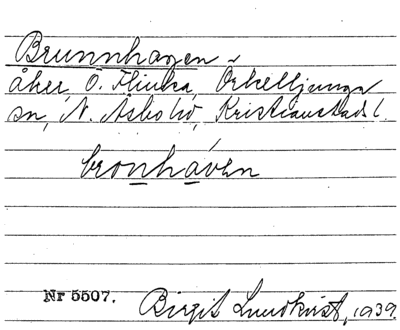 Brunnhagen
åker, Ö. Flinka, Örkelljunga
sn, N. Åsbo hd, Kristianstads l.
bronháven
Nr 5507.
Birgit Lundkvist, 1939.